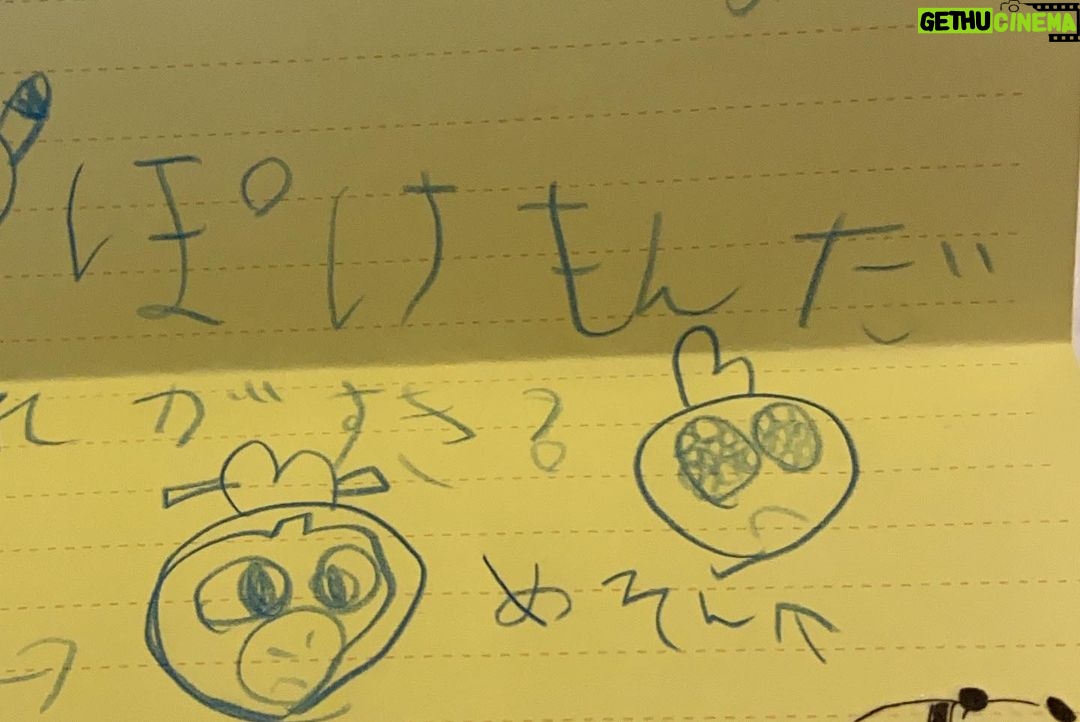 GETHUCINEMA
ぽけもんだ
がすき?
めそん↑
→